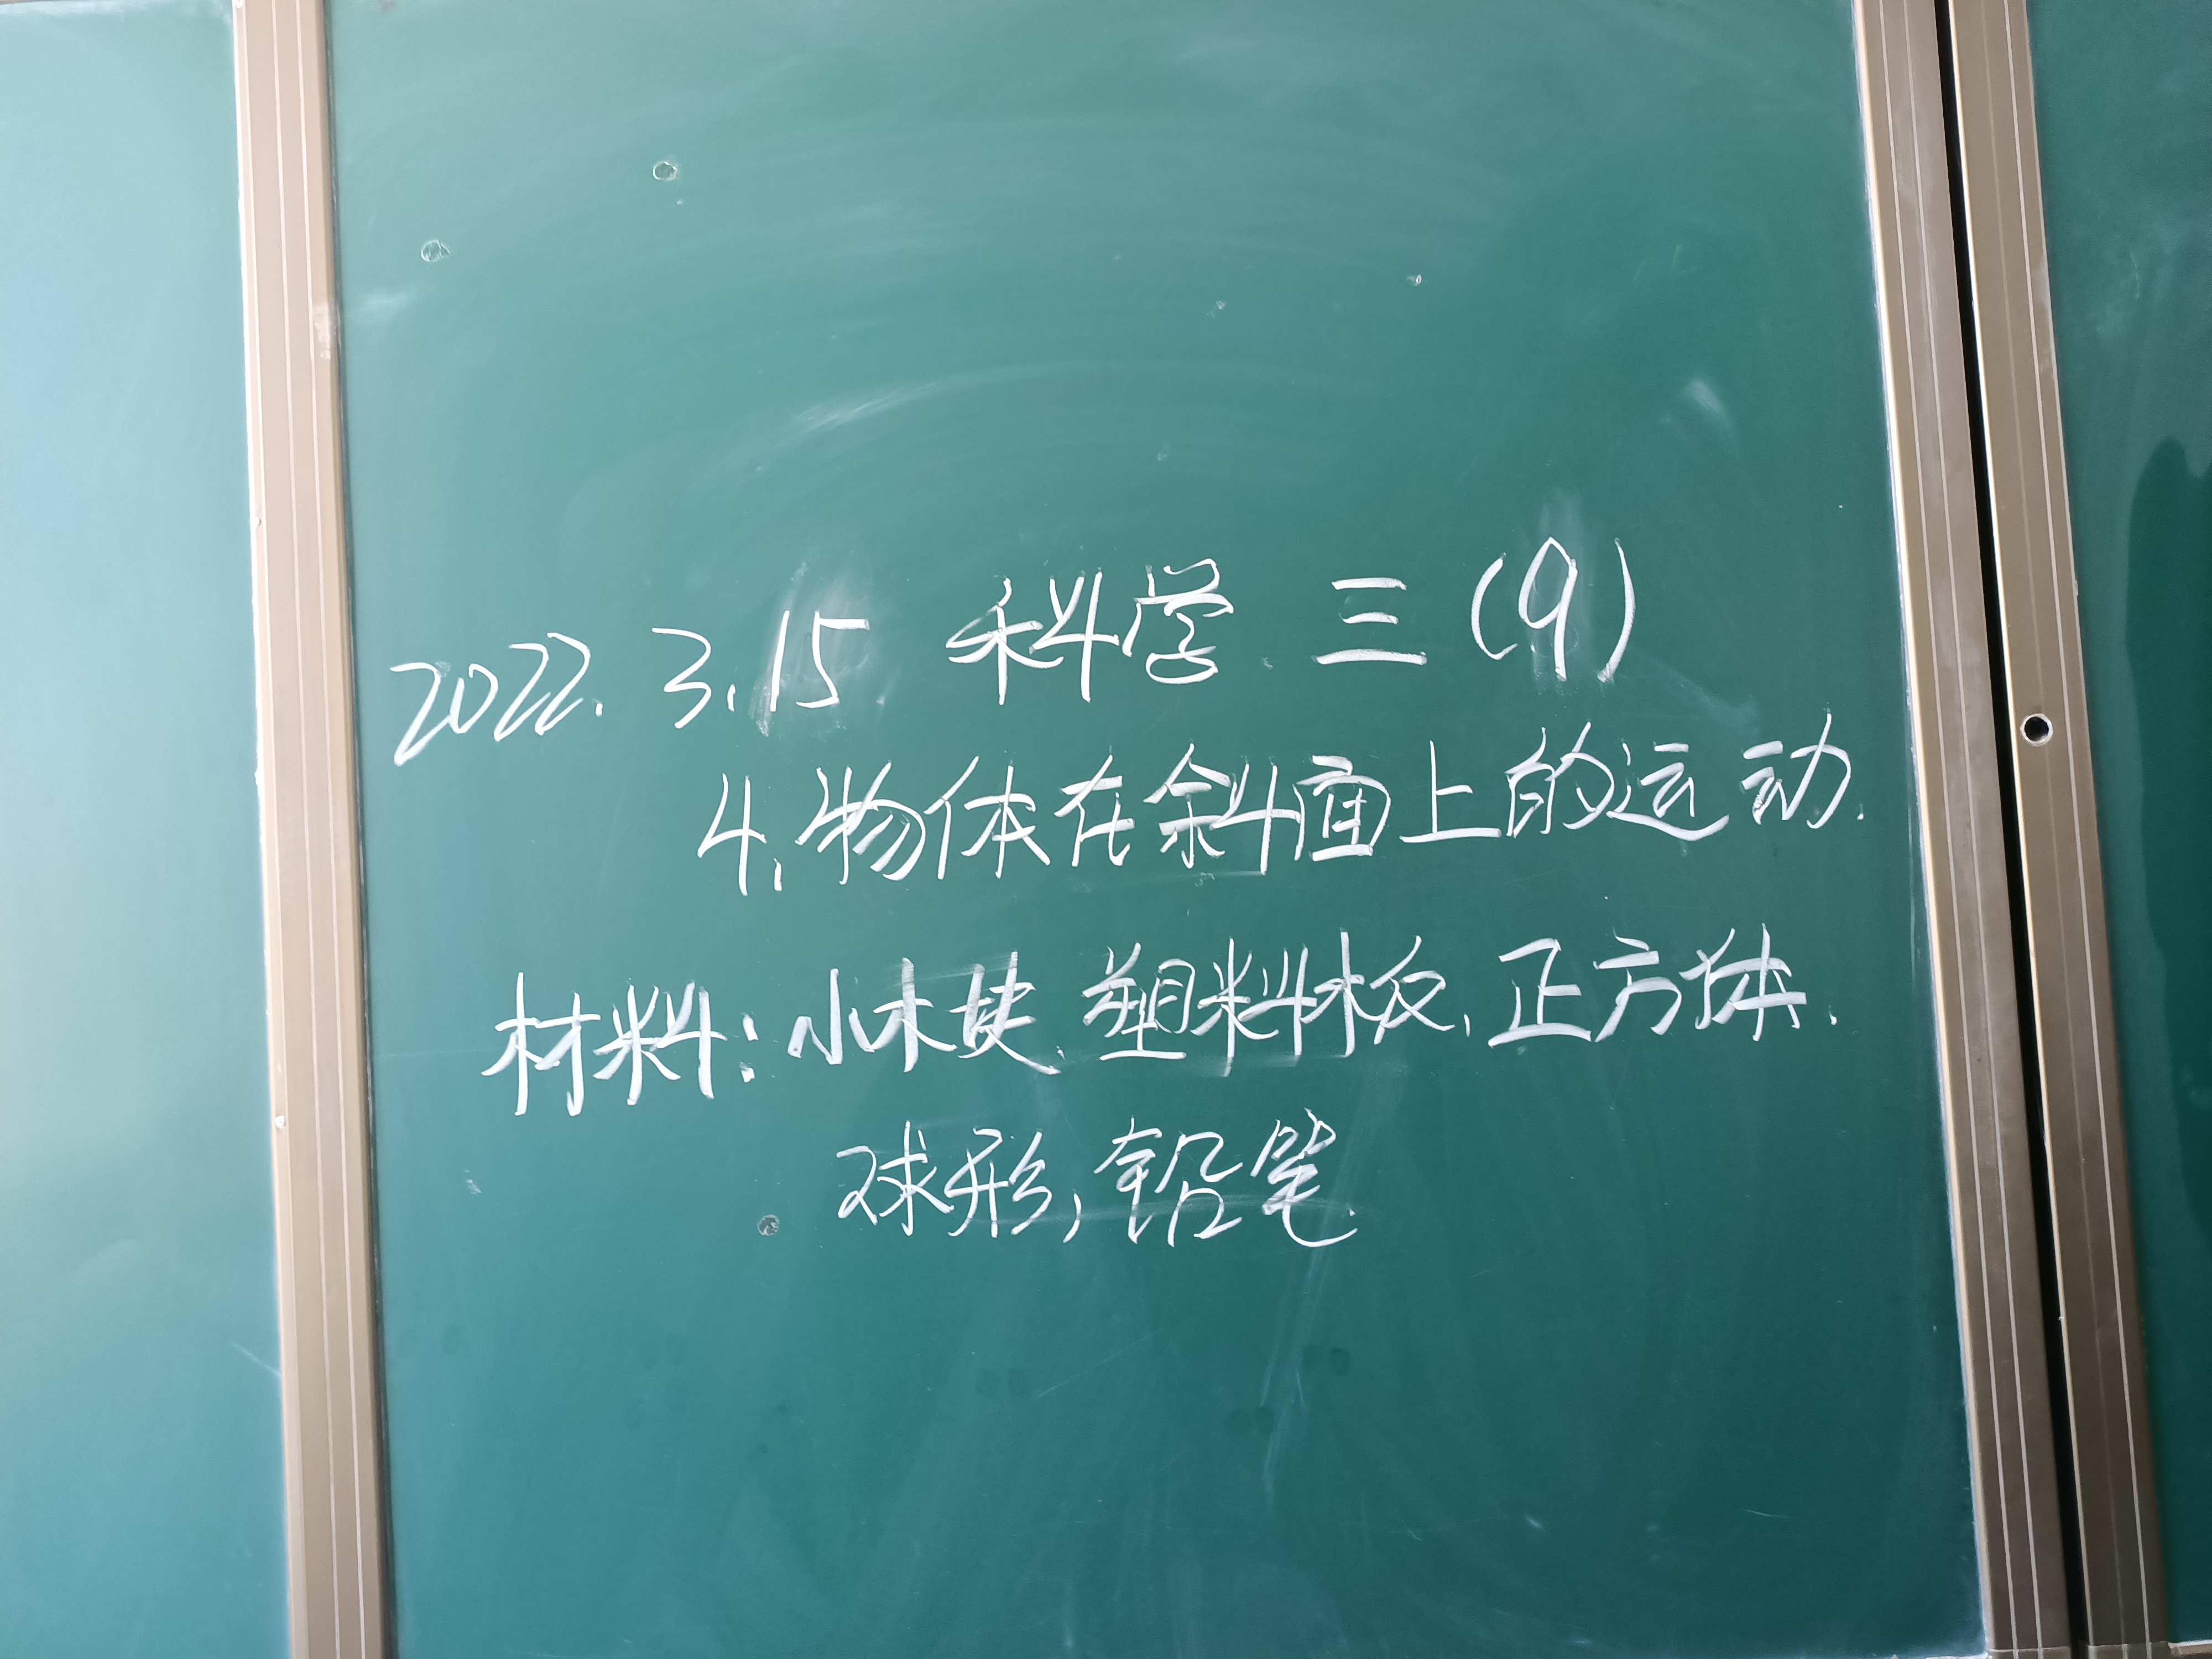 2022.3.15 科学 三(9)
4.物体在斜面上的运动.
材料:小木块、塑料板,正方体.
球形,铅笔.